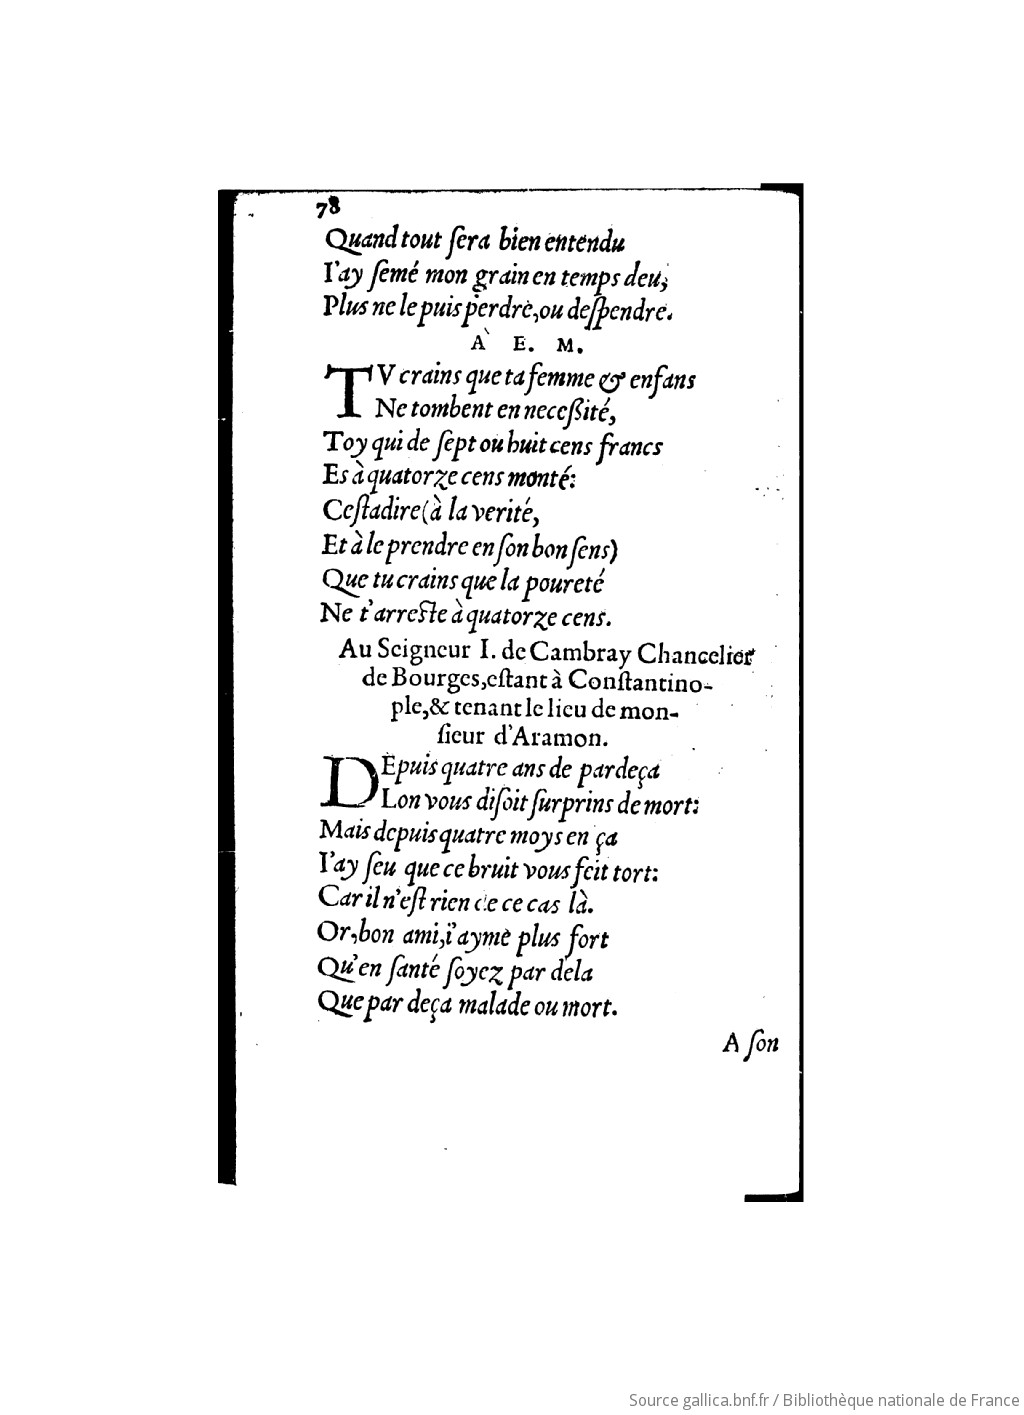 78
Quand tout ſera bien entendu
I'ay ſemé mon grain en temps deu;
Plus ne le puis perdre, ou deſpendre.
À E. M.
TV crains que ta femme & enfans
Ne tombent en neceßité,
Toy qui de ſept ou huit cens francs
Es à quatorze cens monté:
Ceſtadire (à la verité,
Et à le prendre en ſon bon ſens)
Que tu crains que la poureté
Ne t'arreſte à quatorze cens.
Au Seigneur I. de Cambray Chancelier
de Bourges, eſtant à Conſtantino-
ple, & tenant le lieu de mon-
ſieur d'Aramon.
DEpuis quatre ans de pardeça
Lon vous diſoit ſurprins de mort:
Mais depuis quatre moys en ça
I'ay ſeu que ce bruit vous feit tort:
Car il n'eſt rien de ce cas là.
Or, bon ami, i'ayme plus fort
Qu'en ſanté ſoyez par dela
Que par deça malade ou mort.
A ſon
Source gallica.bnf.fr / Bibliothèque nationale de France